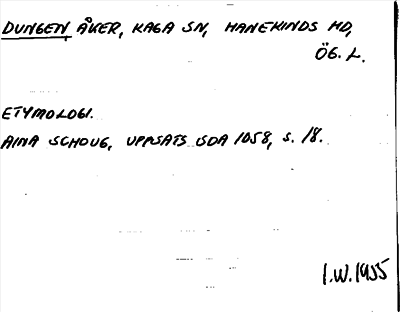 DUNGEN, ÅKER, KAGA SN, HANEKINDS HD,
ÖG. L.
ETYMOLOGI.
AINA SCHOUG, UPPSATS ISDA 1058, S. 18.
I.W. 1955